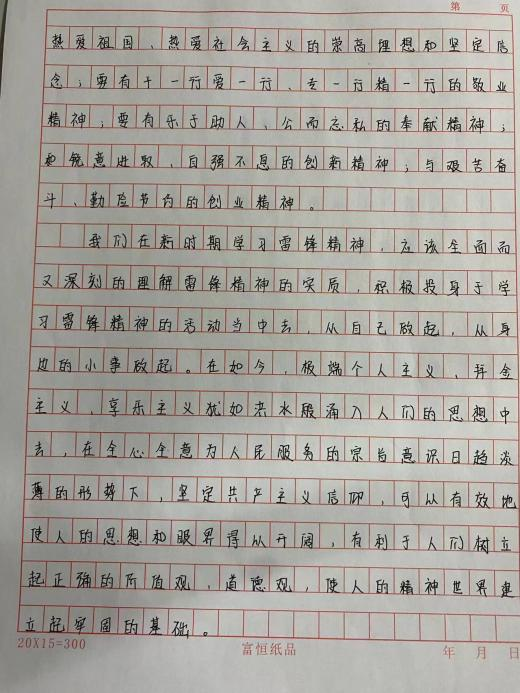 第 页
热爱祖国、热爱社会主义的崇高理想和坚定信
念；要有干一行爱一行、专一行精一行的敬业
精神；要有乐于助人、公而忘私的奉献精神；
锐意进取、自强不息的创新精神；与艰苦奋
斗、勤俭节约的创业精神。
我们在新时期学习雷锋精神，应该全面而
又深刻的理解雷锋精神的实质，积极投身于学
习雷锋精神的活动当中去，从自己做起，从身
边的小事做起。在如今，极端个人主义、拜金
主义、享乐主义犹如洪水般涌入人们的思想中
去，在全心全意为人民服务的宗旨意识日趋淡
薄的形势下，坚定共产主义信仰，可以有效地
使人的思想和眼界得以开阔，有利于人们树立
起正确的价值观，道德观，使人的精神世界建
立起牢固的基础。
20X15=300 富恒纸品 年 月 日